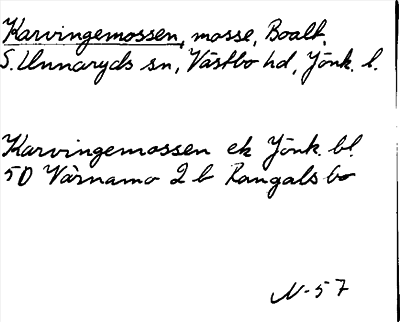 Karvingemossen, mosse, Boalt,
S. Unnaryds sn, Västbo hd, Jönk. l.
Karvingemossen ek Jönk. bl.
5D Värnamo 2 b Rangalsbo
N-57